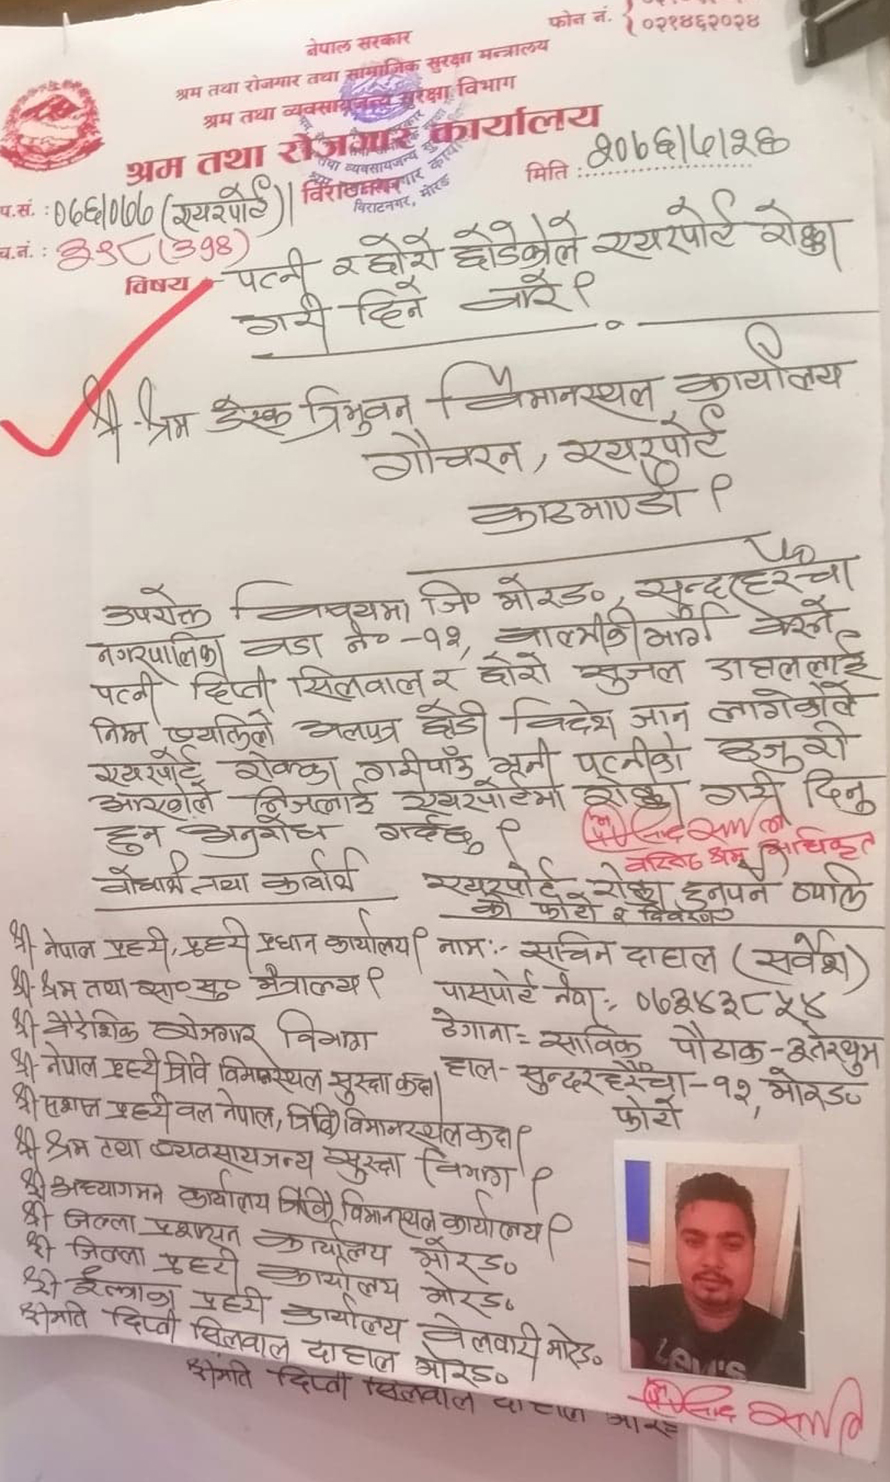 फोन नं. ०२१४६२०२४
नेपाल सरकार
श्रम तथा रोजगार तथा सामाजिक सुरक्षा मन्त्रालय
श्रम तथा व्यवसायजन्य सुरक्षा विभाग
श्रम तथा रोजगार कार्यालय
विराटनगर
विराटनगर, मोरङ
मिति :
प.सं. : ०७६/०७७ (एयरपोर्ट)
च.नं. :
विषय :- पत्नी र छोरो छोडेकोले एयरपोर्ट रोक्का
गरी दिने बारे ।
श्री श्रम डेस्क त्रिभुवन विमानस्थल कार्यालय
गौचरन, एयरपोर्ट
काठमाण्डौ ।
उपरोक्त विषयमा जि० मोरङ०, सुन्दरहरैंचा
नगरपालिका वडा नं० -१२, बाल्मीकी मार्ग बस्ने
पत्नी दिप्ती सिलवाल र छोरो सुजल डाहाललाई
निम्न व्यक्तिले अलपत्र छोडी विदेश जान लागेकोले
एयरपोर्ट रोक्का गरीपाँउ भनी पत्नीको हजुरी
आएकोले निजलाई एयरपोर्टमा रोक्का गरी दिनु
हुन अनुरोध गर्दछु ।
वरिष्ठ श्रम अधिकृत
बोधार्थ तथा कार्यार्थ
एयरपोर्ट रोक्का हुनुपर्ने व्यक्ति
को फोटो र विवरण
श्री नेपाल प्रहरी, प्रहरी प्रधान कार्यालय।
नाम:- सचिन दाहाल (सर्वेश)
श्री श्रम तथा सा० सु० मंत्रालय ।
पासपोर्ट नंवर:, ०७३४३८५४
श्री वैदेशिक रोजगार विभाग
ठेगाना= साविक पौठाक-तेरथुम
श्री नेपाल प्रहरी त्रिवि विमानस्थल सुरक्षा कक्ष।
हाल- सुन्दरहरैंचा-१२, मोरङ०
श्री सशस्त्र प्रहरी वल नेपाल, त्रिवि विमानस्थल कक्ष।
फोटो
श्री श्रम तथा व्यवसायजन्य सुरक्षा विभाग ।
श्री अध्यागमन कार्यालय त्रिवि विमानस्थल कार्यालय।
श्री जिल्ला प्रशासन कार्यालय मोरङ०
श्री जिल्ला प्रहरी कार्यालय मोरङ०
श्री ईलाका प्रहरी कार्यालय वेलवारी मोरङ०
श्रीमति दिप्ती सिलवाल दाहाल मोरङ०
श्रीमति दिप्ती सिलवाल दाहाल मोरङ
LEVI'S